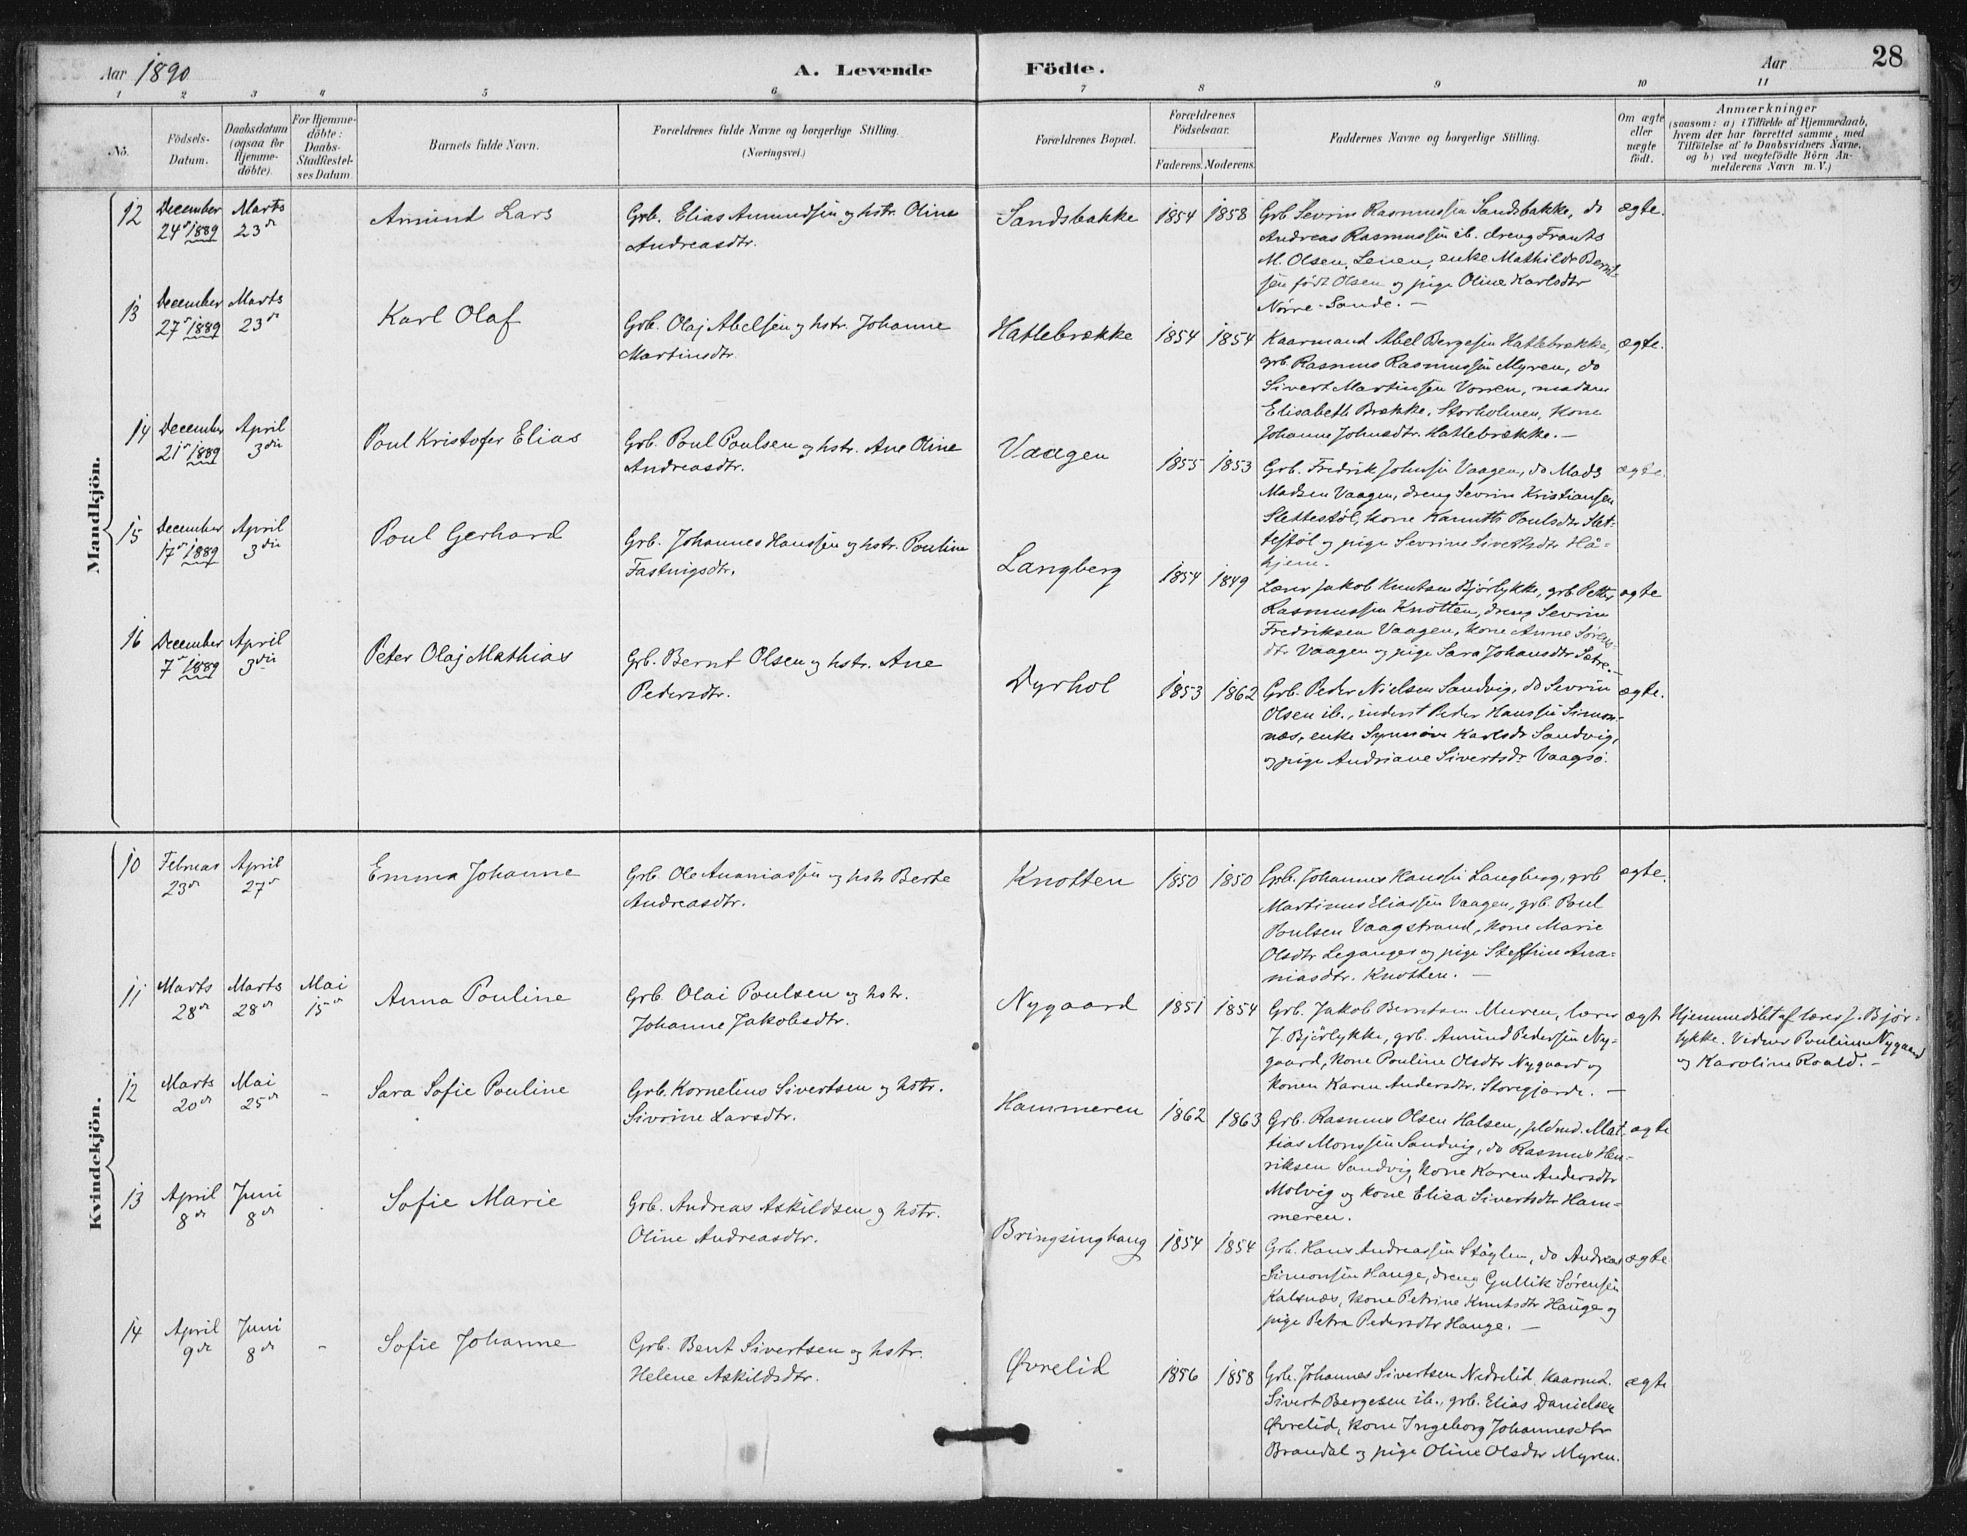 Aar 1890
A. Levende Födte.
Aar
28
1 2 3 4 5 6 7 8 9 10 11
No.
Födsels-Datum.
Daabsdatum (ogsaa for Hjemme-döbte).
For Hjemme-döbte: Daabs-Stadfæstel-ses Datum
Barnets fulde Navn.
Forældrenes fulde Navne og borgerlige Stilling.
(Næringsvei.)
Forældrenes Bopæl.
Forældrenes Födselsaar.
Faderens. Moderens.
Faddernes Navne og borgerlige Stilling.
Om ægte eller uægte födt.
Anmærkninger
(saasom: a) i Tilfælde af Hjemmedaab,
hvem der har forrettet samme, med
Tilföielse af to Daabsvidners Navne,
og b) ved uægtefödte Börn An-
melderens Navn m. V.)
Mandkjön.
12 December 24de 1889 Marts 23de Amund Lars
Grb. Elias Amundsen og hstr. Oline
Andreasdtr.
Sandsbakke 1854 1858
Grb Sevrin Rasmussen Sandsbakke, do
Andreas Rasmussen ib. dreng Frants
M. Olsen, Leven, enke Mathilde Bernt-
sen født Olsen og pige Oline Karlsdtr
Nørre-Sande. —
ægte.
13 December 27de 1889 Marts 23de Karl Olaf
Grb. Olaj Abelsen og hstr. Johanne
Martinsdtr.
Hatlebrække 1854 1854
Kaarmand Abel Bergesen Hatlebrække,
grb. Rasmus Rasmussen Myren, do
Sivert Martinsen Vorren, madam
Elisabeth Brække, Storholmen, kone
Johanne Johnsdtr. Hatlebrække. —
ægte.
14 December 21de 1889 April 3die Poul Kristofer Elias
Grb. Poul Poulsen og hstr. Ane Oline
Andreasdtr.
Vaagen 1855 1853
Grb. Fredrik Johnsen Vaagen, do Mads
Madsen Vaagen, dreng Sevrin Kristiansen
Slettestøl, kone Poulsdtr Slet-
testøl og pige Sevrine Sivertsdtr Hå-
hjem.
ægte.
15 December 17de 1889 April 3die Poul Gerhard
Grb. Johannes Hanssen og hstr. Pouline
Fastnigsdtr.
Langberg 1854 1849
Lærer Jakob Knutsen Bjørlykke, grb Petter
Rasmussen Knotten, dreng Sevrin
Fredriksen Vaagen, kone Anne Sørens-
dtr Vaagen og pige Sara Johansdtr Sætre.—
ægte
16 December 7de 1889 April 3die Peter Olaj Mathias
Grb. Bernt Olsen og hstr. Ane
Pedersdtr.
Dyrhol 1853 1862
Grb. Peder Nielsen Sandvig, do Sevrin
Olsen ib., inderst Peder Hanssen Simon-
næs, enke Synnøve Karlsdr Sandvig,
og pige Andriane Sivertsdr Vaagsø.
ægte.
Kvindekjön.
10 Februar 23de April 27de Emma Johanne
Grb. Ole Ananiassen og hstr Berte
Andreasdtr.
Knotten 1850 1850
Grb. Johannes Hanssen Langberg, grb
Martinus Eliassen Vaagen, grb. Poul
Poulsen Vaagstrand, kone Marie
Olsdtr Leganger og pige Steffine Ana-
niasdtr. Knotten. —
ægte.
11 Marts 28de Marts 28de Mai 15de Anna Pouline
Grb. Olai Poulsen og hstr.
Johanne Jakobsdtr.
Nygaard 1851 1854
Grb. Jakob Berntsen Muren, lærer
J. Bjørlykke, grb. Amund Pedersen Ny-
gaard, kone Pouline Olsdtr Nygaard og
konen Karen Andersdtr. Storegjærde. —
ægte
Hjemmedøbt af lærer J. Bjør-
lykke. Vidner Pouline Nygaard
og Karoline Roald. —
12 Marts 20de Mai 25de - Sara Sofie Pouline
Grb. Kornelius Sivertsen og hstr.
Sivrine Larsdtr.
Hammeren 1862 1863
Grb. Rasmus Olsen Halsen, pldmd. Mat-
tias Monssen Sandvig, do Rasmus Hen-
riksen Sandvig, kone Karen Andersdtr
Molvig og kone Elisa Sivertsdtr Ham-
meren.
ægte
13 April 8de Juni 8de Sofie Marie
Grb. Andreas Askildsen og hstr.
Oline Andreasdtr.
Bringsinghaug 1854 1854
Grb. Hans Andreassen Støylen, do Andreas
Simonsen Hauge, dreng Gullik Sørensen
Kalsnæs, kone Petrine Knutsdtr Hauge og
pige Petra Pedersdtr Hauge. —
ægte
14 April 9de Juni 8de - Sofie Johanne
Grb. Bent Sivertsen og hstr.
Helene Askildsdtr.
Øvrelid 1856 1858
Grb. Johannes Sivertsen Nedrelid, kaarmd.
Sivert Bergesen ib., grb. Elias Danielsen
Øvrelid, kone Ingeborg Johannesdtr
Brandal og pige Oline Olsdtr Myren.
ægte